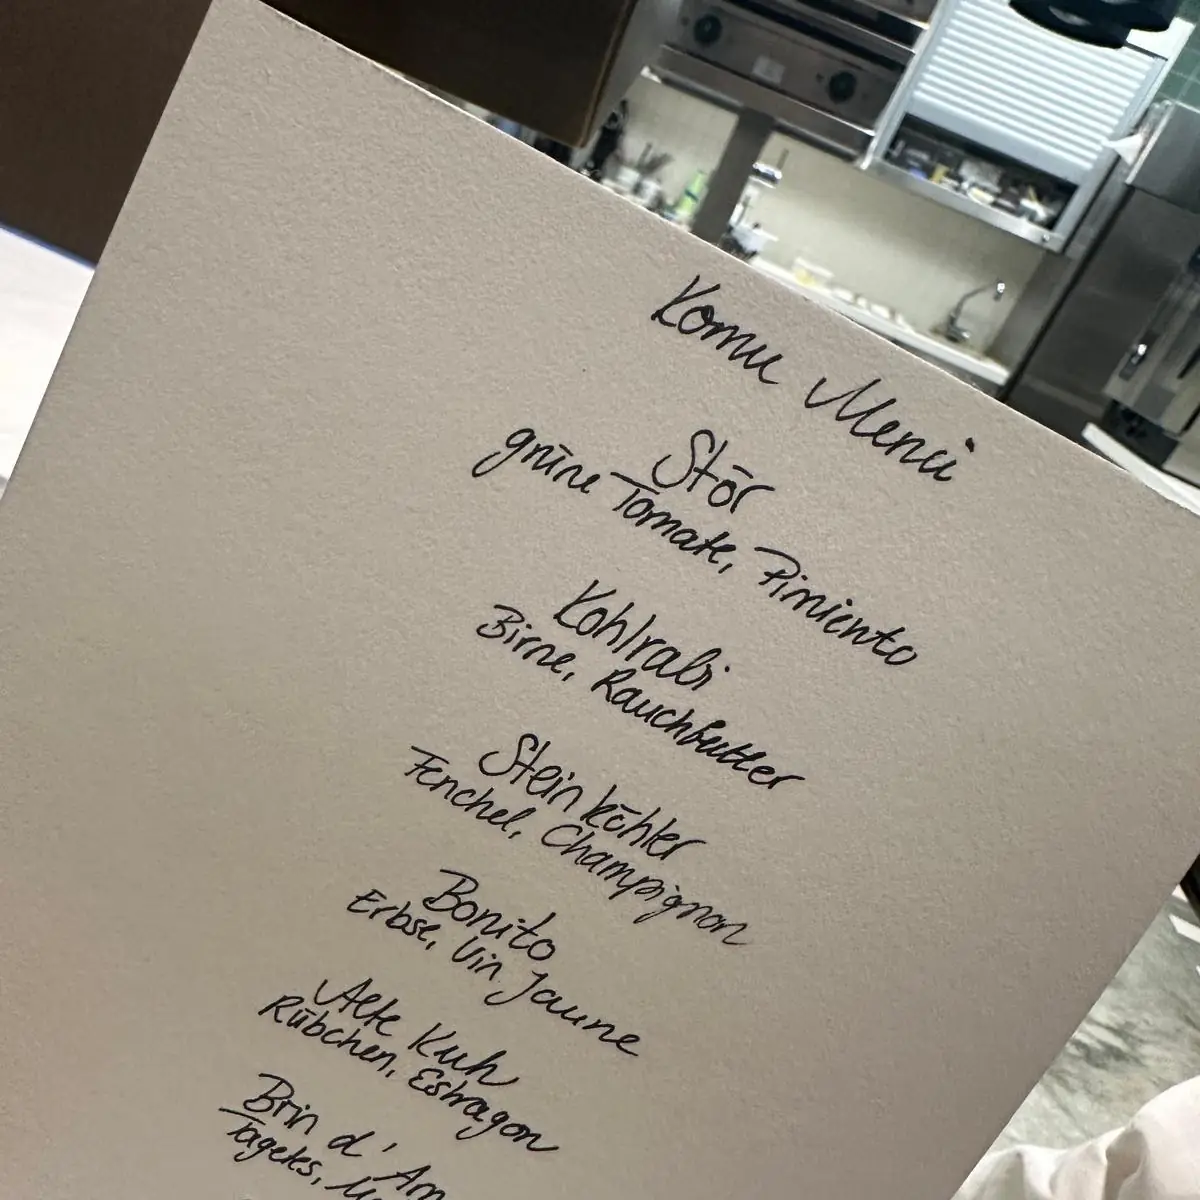 Komu Menü
Stör
grüne Tomate, Pimiento
Kohlrabi
Birne, Rauchbutter
Steinköhler
Fenchel, Champignon
Bonito
Erbse, Vin Jaune
Alte Kuh
Rübchen, Estragon
Brin d'Am
Tagetes,